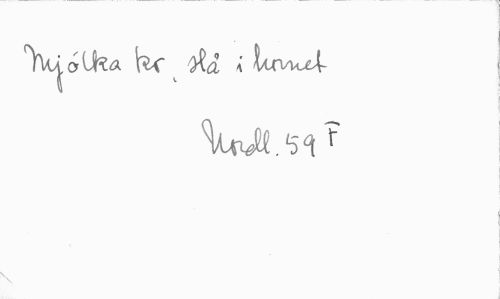 Mjólka kr, slå i hornet
Nordl. 59 F